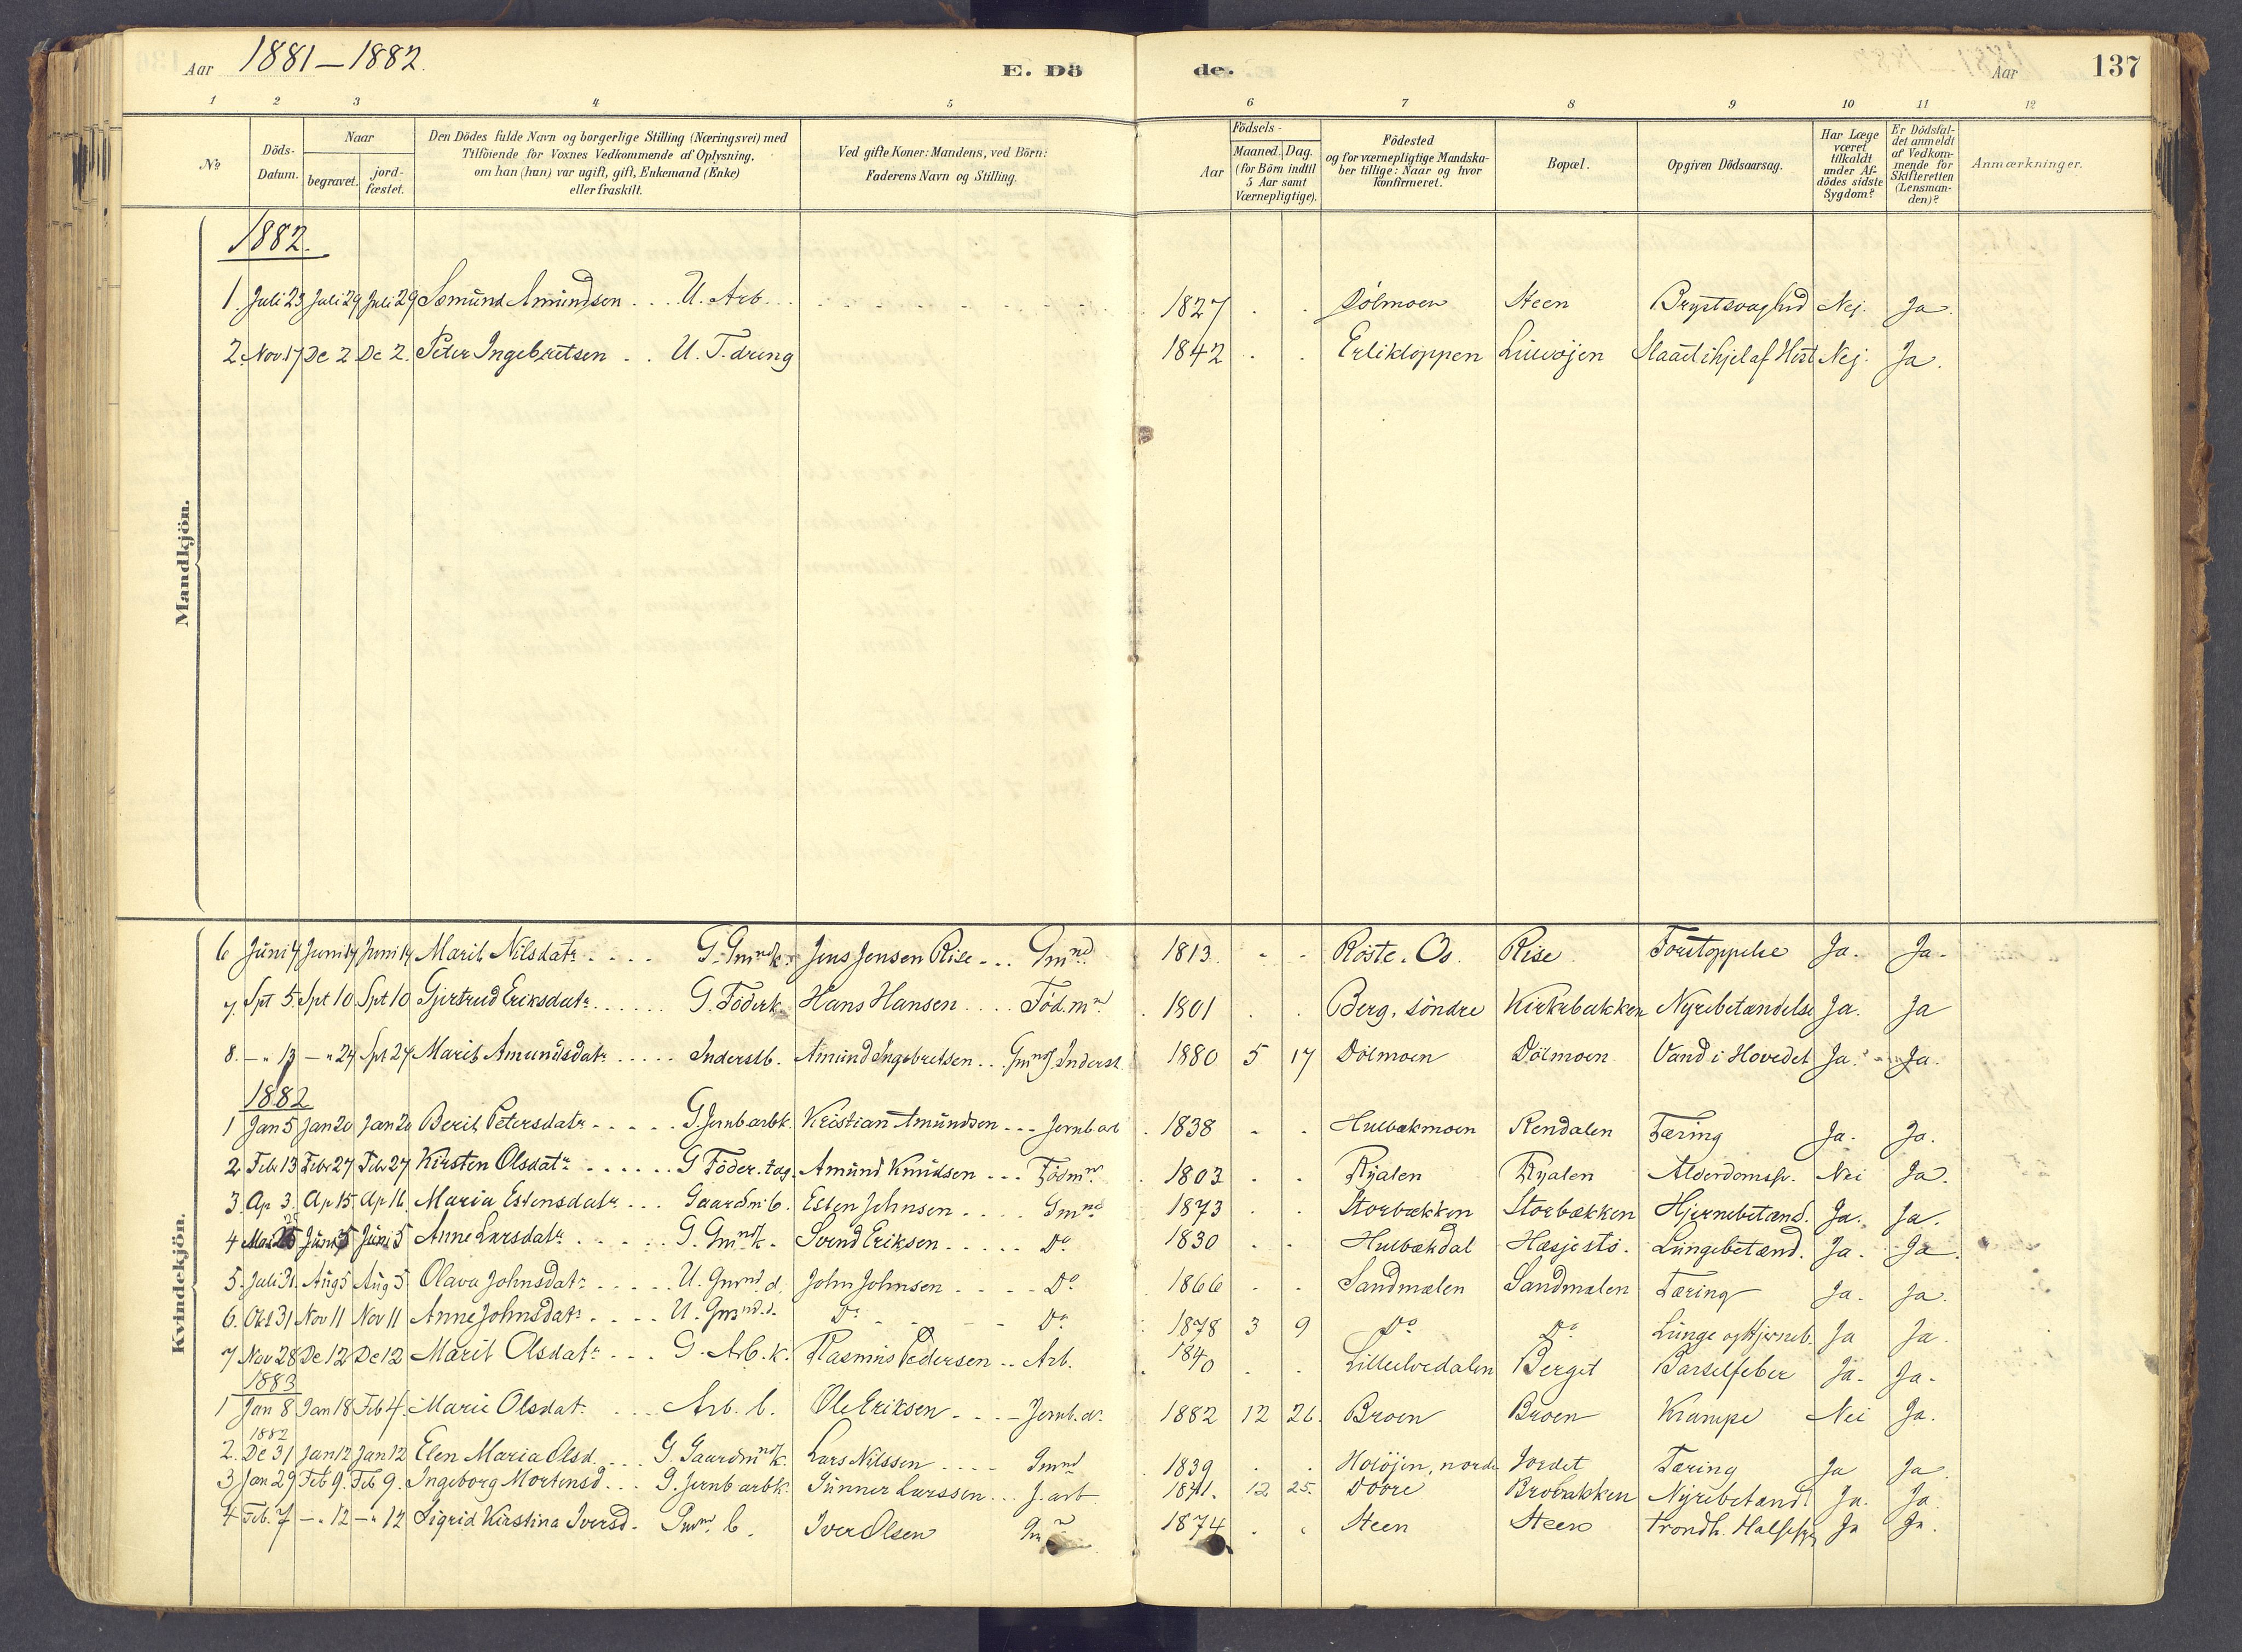 Aar 1881-1882.
E. Dö
de.
Aar
137
1 2 3 4 5 6 7 8 9 10 11 12
No
Döds-
Datum.
Naar
begravet.
jord-
fæstet.
Den Dödes fulde Navn og borgerlige Stilling (Næringsvei) med
Tilföiende for Voxnes Vedkommende af Oplysning,
om han (hun) var ugift, gift, Enkemand (Enke)
eller fraskilt.
Ved gifte Koner: Mandens, ved Börn:
Faderens Navn og Stilling.
Födsels-
Aar
Maaned. Dag.
(for Börn indtil
5 Aar samt
Værnepligtige).
Födested
og for værnepligtige Mandska-
ber tillige: Naar og hvor
Konfirmeret.
Bopæl.
Opgiven Dödsaarsag.
Har Læge
været
tilkaldt
under Af-
dödes sidste
Sygdom?
Er Dödsfal-
det anmeldt
af Vedkom-
mende for
Skifteretten
(Lensman-
den)?
Anmærkninger.
Mandkjön.
1882.
1. Juli 23 Juli 29 Juli 29 Amundsen . . . U. Arb. . . 1827 . . Dölmoen Steen Nej. Ja.
2. Nov. 17 De 2 De 2. Peter Ingebretsen . . U. T.dreng 1842 . . Slaaet ihjel af Hest Nej. Ja.
Kvindekjön.
6 Juni 4 Juni 14 Juni 14 Marit Nilsdatr. . . . . Jens Jensen Rise . . . Gmnd 1813. - - Röste. Os. Rise Forstoppelse Ja. Ja.
7. Spt 5. Spt 10 Spt 10 Gjertrud Eriksdatr. . . . . . G. Föderk. Hans Hansen . . . . Föd.mn. 1801 . . Berg, söndre Kirkebakken Nyrebetændelse Ja. Ja
8. - " 13 - " 24 Spt 24 Marit Amundsdatr. . . . . Inderstb. Amund Ingebretsen . . Inderst. 1880 5 17 Dölmoen Dölmoen Vand i Hovedet Ja. Ja.
1882
1 Jan 5 Jan 20 Jan 20 Berit Petersdatr. . . . . G. Jernbarbk. Kristian Amundsen . . . Jernb.arb. 1838 - - Hulbækmoen Rendalen Tæring Ja. Ja.
2. Febr 13 Febr 27 Febr 27 Kirsten Olsdatr. . . . . . G Föder.tag. Amund Knudsen . . . Födmn. 1803 . . Ryalen Ryalen Alderdomssv. Nei Ja.
3. Ap 3. Ap 15 Ap 16 Maria Estensdatr. . . Gaardmb. Esten Johnsen . . . . Gmnd 1873 . . Storbækken Storbækken Hjernebetænd. Ja. Ja.
4 Mai 25 Juni 5 Juni 5 Anne Larsdatr. . . . . . G. Gmndk. Svend Eriksen . . . . . Do 1830 . . Hulbækdal Hæsjestö. Lungebetænd. Ja. Ja.
5. Juli 31. Aug 5 Aug 5 Olava Johnsdatr. . . . . U. Gmnd.d. John Johnsen . . . . . Do 1866 . . Sandmælen Sandmælen Tæring Ja. Ja.
6. Okt 31 Nov 11 Nov 11 Anne Johnsdatr. . . . . U. Gmnd.d. Do - - - Do 1878 3 9 Do Do Lunge og Hjerneb. Ja Ja.
7 Nov 28 De 12 De 12 Marit Olsdatr. . . . G. Arb.k. Rasmus Pedersen . . Arb. 1840 . . Lilleelvedalen Berget Barselfeber Ja. Ja.
1883
1 Jan 8 Jan 18 Feb 4. Marie Olsdat. . . . Arb. b. Ole Eriksen . . . Jernb.a. 1882 12 26. Broen Broen Krampe Nei Ja.
1882
2. De 31 Jan 12 Jan 12 Elen Maria Olsd. . . . G. Gaardmndk. Lars Nilssen . . . . Gmnd 1839 . . Holöjen, nordre Jordet Tæring Ja Ja
3 Jan 29 Feb 9. Feb 9. Ingeborg Mortensd . . . G. Jernbarbk. Gunner Larssen . . . J.arb. 1841. 12 25. Dovre Brobakken Nyrebetænd. Ja. Ja.
4 Feb. 7 - " 12 - " 12 Sigrid Kirstina Iversd. Gmn. b. Iver Olsen 1874 . . Steen Steen Ja Ja.